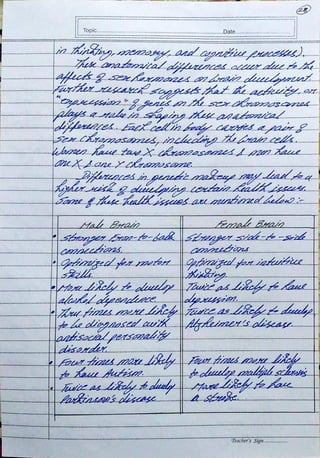 28
Topic
Date
in thinking, memory, and cognitive processes).
These anatomical differences occur due to the
affects of sex hormones on brain development.
Further research suggests that the activity, or
"expression" of genes on the sex chromosomes
plays a role in shaping these anatomical
differences. Each cell in body carries a pair of
sex chromosomes, including the brain cells.
Women have two X chromosomes & men have
one X & one Y chromosome.
Differences in genetic makeup may lead to a
higher risk of developing certain health issues.
Some of these health issues are mentioned below :-
Male Brain
• Stronger front-to-back
connections.
• Optimized for motor
skills.
• More likely to develop
alcohol dependence.
• Three times more likely
to be diagnosed with
antisocial personality
disorder.
• Four times more likely
to have Autism.
• Twice as likely to develop
Parkinson's disease
Female Brain
Stronger side-to-side
connections
Optimized for intuitive
thinking.
Twice as likely to have
depression.
Twice as likely to develop
Alzheimer's disease
Four times more likely
to develop multiple sclerosis
More likely to have
a stroke.
Teacher's Sign